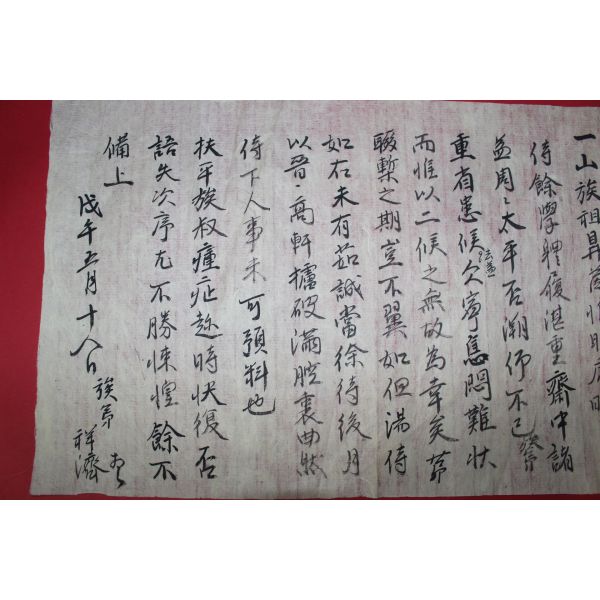 一山族祖
侍餘學體履湛重齋中諸
益周〻太平否溯仰不已 族弟
重省患候欠寧焦悶難狀
而惟以二候之無故爲幸矣 弟
輟槧之期豈不翼如但湯侍
如右未有茹誠當徐待後月
以晉高軒攄破滿腔裏曲然
侍下人事未可預料也
扶平族叔瘇症趁時快復否
語失次序尤不勝悚惶餘不
備上
戊午五月十八日 族弟 祥濟